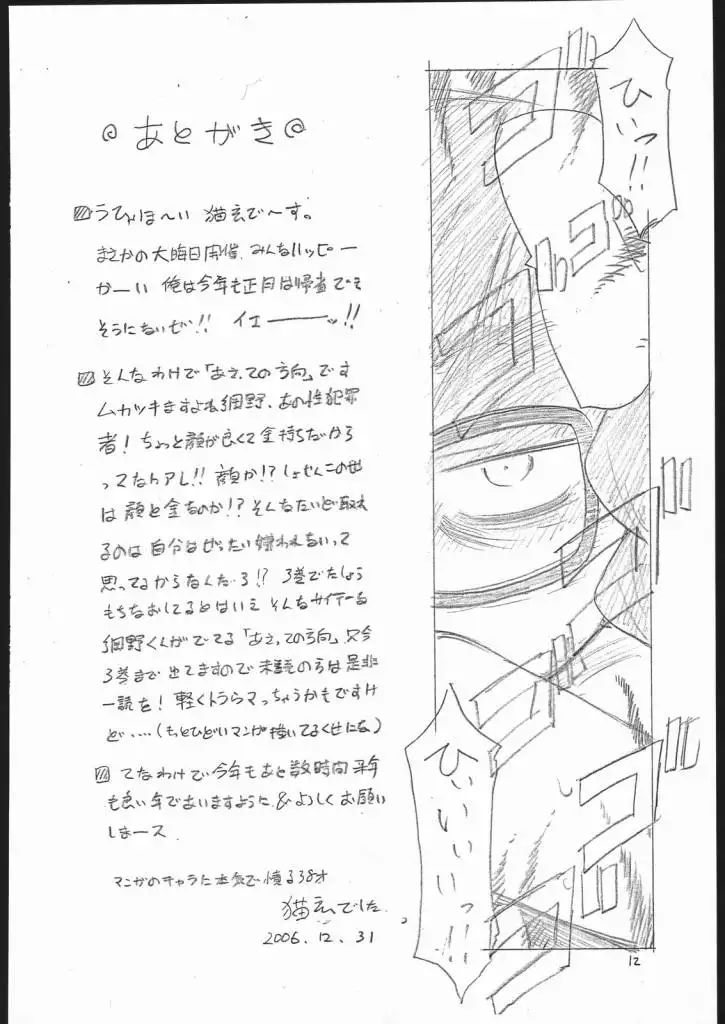 あとがき
うひょほ〜い 猫玄で〜す。
まさかの大晦日開催、みんなハッピー
かーい 俺は今年も正月は帰省でき
そうにないぜ!! イエーーーッ!!
そんなわけで「あえての方向」です
ムカツキますよね網野、あの性犯罪
者! ちょっと顔が良くて金持ちだから
ってなんアレ!! 顔か!? しょせんこの世
は顔と金なのか!? そんなたいど取れ
るのは自分はぜったい嫌われないって
思ってるからなんだろ!? 3巻でたしょう
もちなおしてるとはいえそんなサイテーな
網野くんがでてる「あえての方向」只今
3巻まで出てますので未読の方は是非
一読を! 軽くトラウマっちゃうかもですけ
ど‥‥(もっとひどいマンガ描いてるくせにな)
てなわけで今年もあと数時間 来年
も良い年でありますように & よろしくお願い
しまース
マンガのキャラに本気で憤る38才
猫玄でした。
2006.12.31
ひいっ!!
ひいいいっ!!
12